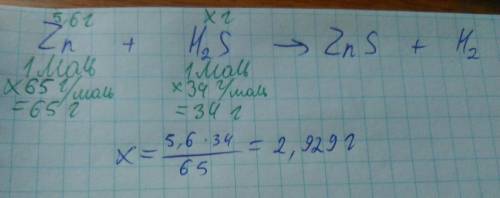 5,6 г x г
Zn + H₂S → ZnS + H₂
1 моль 1 моль
×65 г/моль ×34 г/моль
=65 г =34 г
x = 5,6·34 / 65 = 2,929 г